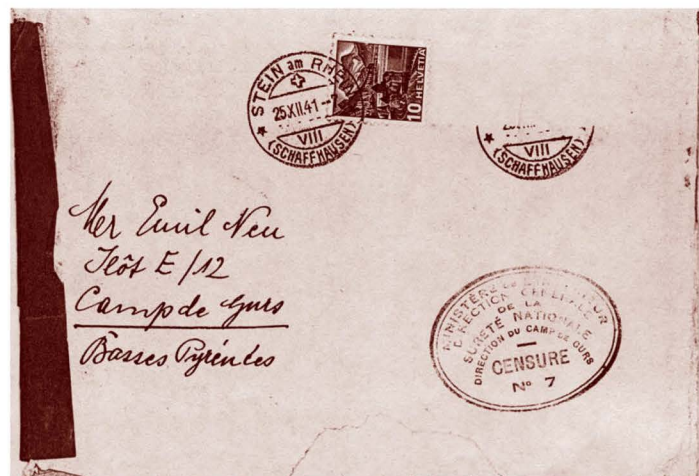 STEIN am RHEIN
25.XII.41.-
VIII
(SCHAFFHAUSEN)
10 HELVETIA
VIII
(SCHAFFHAUSEN)
Mer Emil Neu
Ilôt E/12
Camp de Gurs
Basses Pyrénées
MINISTÈRE DE L'INTÉRIEUR
DIRECTION GÉNÉRALE
DE LA
SURETÉ NATIONALE
DIRECTION DU CAMP DE GURS
CENSURE
No 7